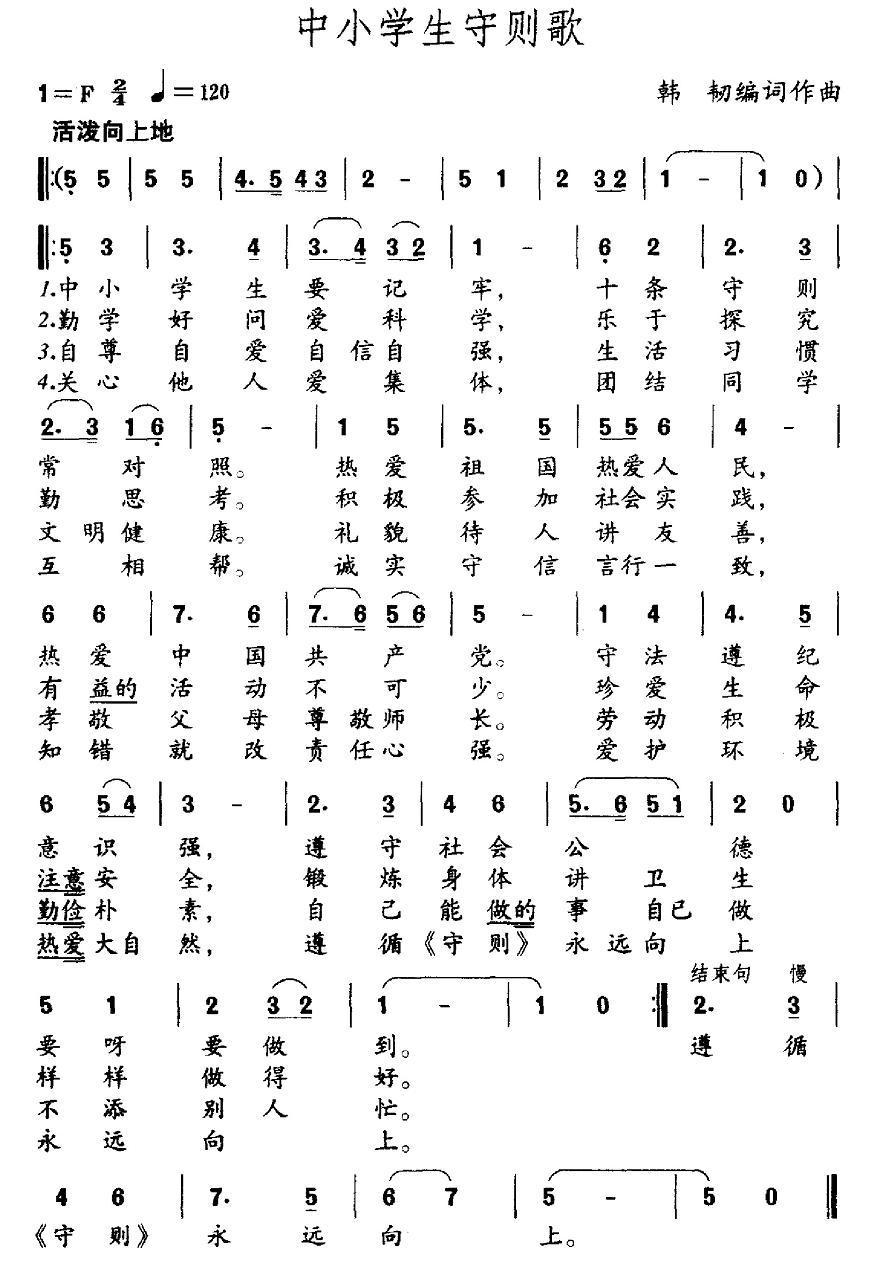 中小学生守则歌
1=F 2/4 ♩=120 韩 韧编词作曲
活泼向上地
‖:(5̣ 5 | 5 5 | 4. 5 4 3 | 2 - | 5 1 | 2 3 2 | 1 - | 1 0) |
‖:5̣ 3 | 3. 4 | 3. 4 3 2 | 1 - | 6̣ 2 | 2. 3 |
1.中 小 学 生 要 记 牢, 十 条 守 则
2.勤 学 好 问 爱 科 学, 乐 于 探 究
3.自 尊 自 爱 自 信 自 强, 生 活 习 惯
4.关 心 他 人 爱 集 体, 团 结 同 学
2. 3 1 6̣ | 5̣ - | 1 5 | 5. 5 | 5 5 6 | 4 - |
常 对 照。 热 爱 祖 国 热爱 人 民,
勤 思 考。 积 极 参 加 社会 实 践,
文 明 健 康。 礼 貌 待 人 讲 友 善,
互 相 帮。 诚 实 守 信 言行 一 致,
6 6 | 7. 6 | 7. 6 5 6 | 5 - | 1 4 | 4. 5 |
热 爱 中 国 共 产 党。 守 法 遵 纪
有 益的 活 动 不 可 少。 珍 爱 生 命
孝 敬 父 母 尊 敬 师 长。 劳 动 积 极
知 错 就 改 责 任 心 强。 爱 护 环 境
6 5 4 | 3 - | 2. 3 | 4 6 | 5. 6 5 1 | 2 0 |
意 识 强, 遵 守 社 会 公 德
注意 安 全, 锻 炼 身 体 讲 卫 生
勤俭 朴 素, 自 己 能 做的 事 自己 做
热爱 大自 然, 遵 循《守 则》永 远 向 上
结束句 慢
5 1 | 2 3 2 | 1 - | 1 0 :‖ 2. 3 |
要 呀 要 做 到。 遵 循
样 样 做 得 好。
不 添 别 人 忙。
永 远 向 上。
4 6 | 7. 5 | 6 7 | 5 - | 5 0 ‖
《守 则》 永 远 向 上。